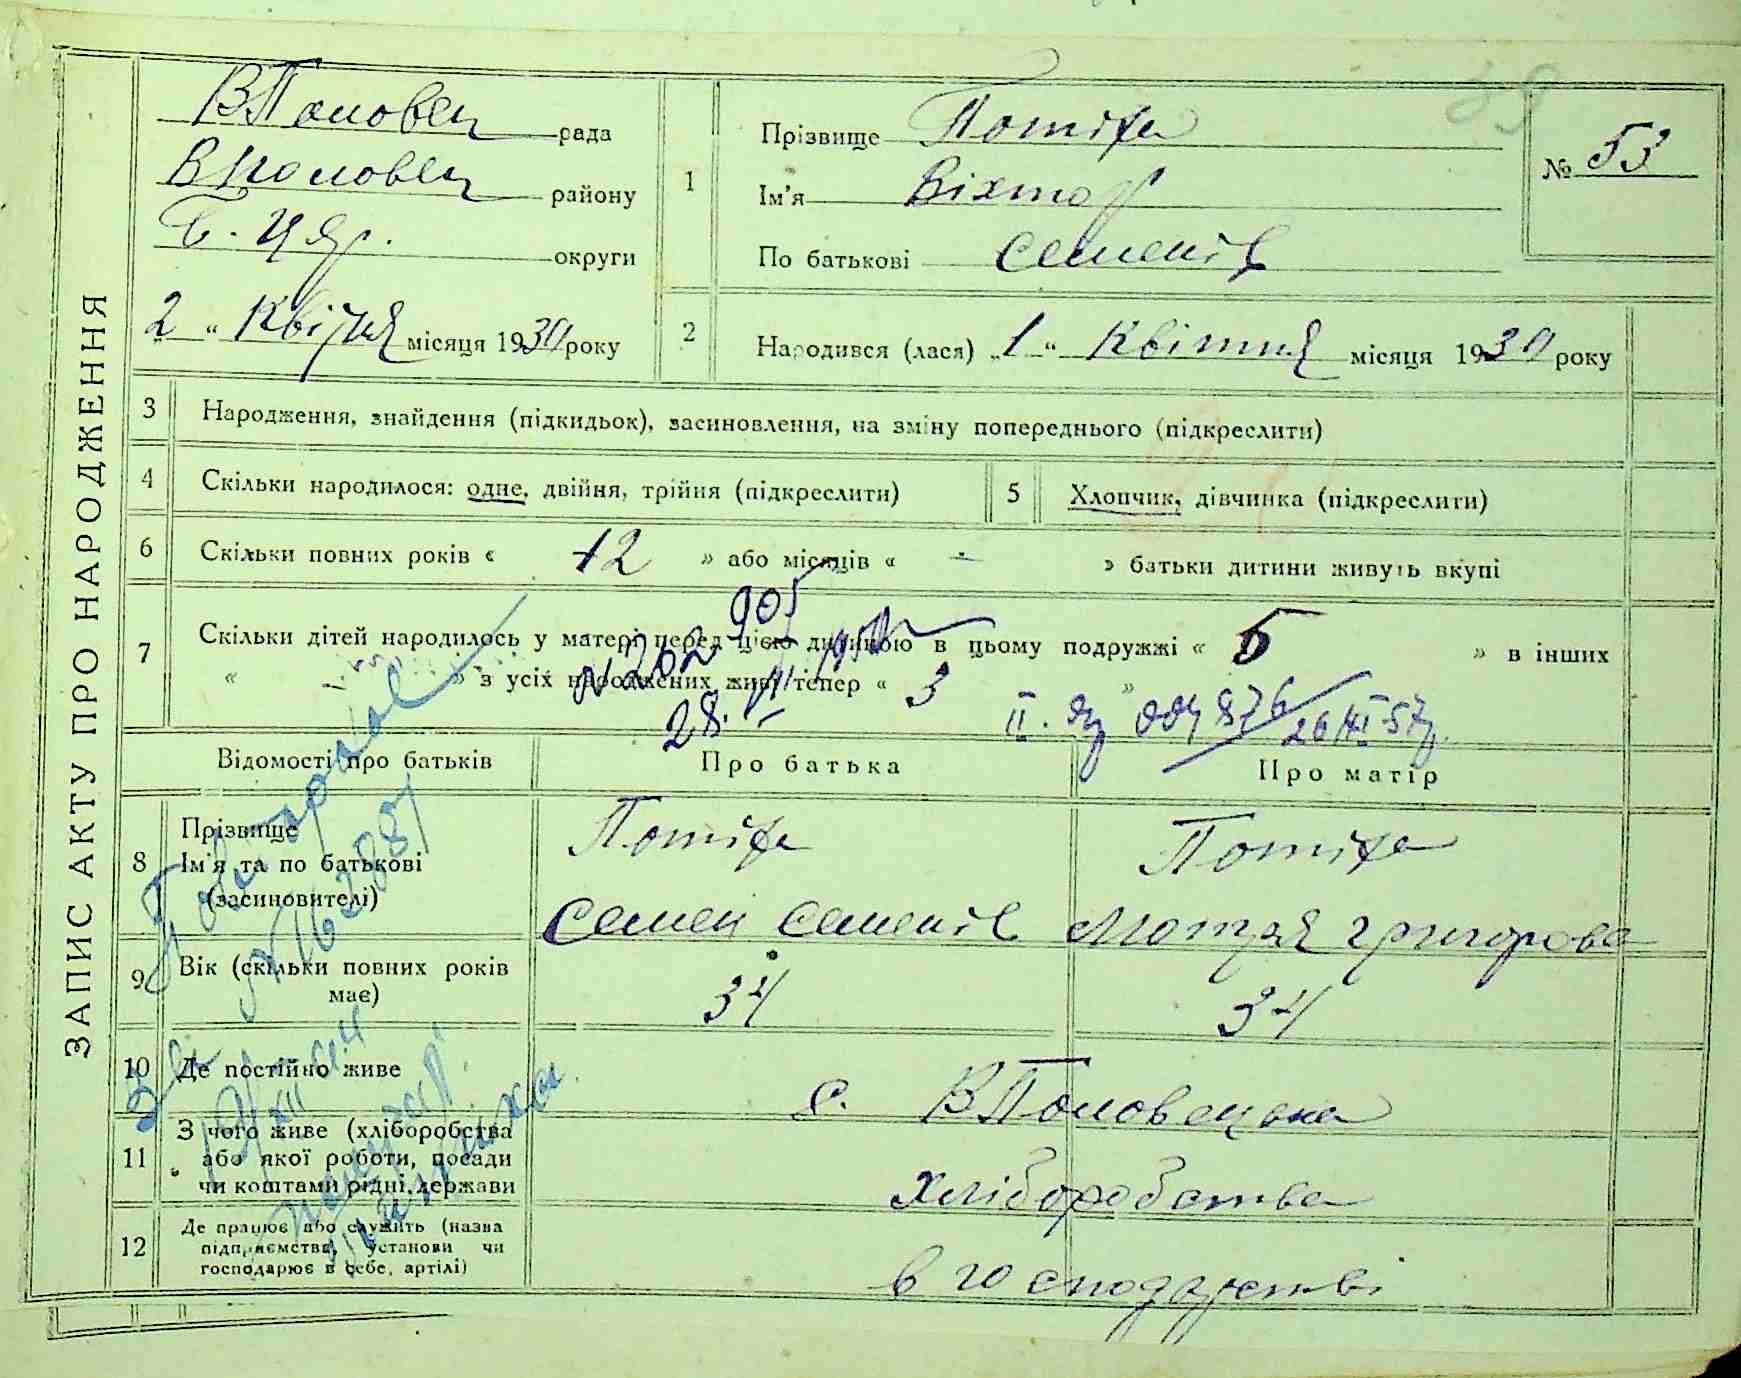 ЗАПИС АКТУ ПРО НАРОДЖЕННЯ
39
ВПоловец рада
ВПоловец району
Б. Церк. округи
„2“ Квітня місяця 1930 року
1
Прізвище Потіха
Ім'я Віктор
По батькові Семенів
№ 53
2
Народився (лася) „1“ Квітня місяця 1930 року
3 Народження, знайдення (підкидьок), засиновлення, на зміну попереднього (підкреслити)
4 Скільки народилося: одне, двійня, трійня (підкреслити)
5 Хлопчик, дівчинка (підкреслити)
6 Скільки повних років « 12 » або місяців « - » батьки дитини живуть вкупі
7 Скільки дітей народилось у матері перед цією дитиною в цьому подружжі « 5 » в інших
« » з усіх народжених живі тепер « 3 »
Відомості про батьків
Про батька
Про матір
8 Прізвище
Ім'я та по батькові
(засиновителі)
Потіха
Семен Семенів
Потіха
Мотря Григорова
9 Вік (скільки повних років
має)
34
34
10 Де постійно живе
с. ВПоловецька
11 З чого живе (хліборобства
або якої роботи, посади
чи коштами рідні, держави
Хліборобства
12 Де працює або служить (назва
підприємства, установи чи
господарює в себе, артілі)
в господарстві